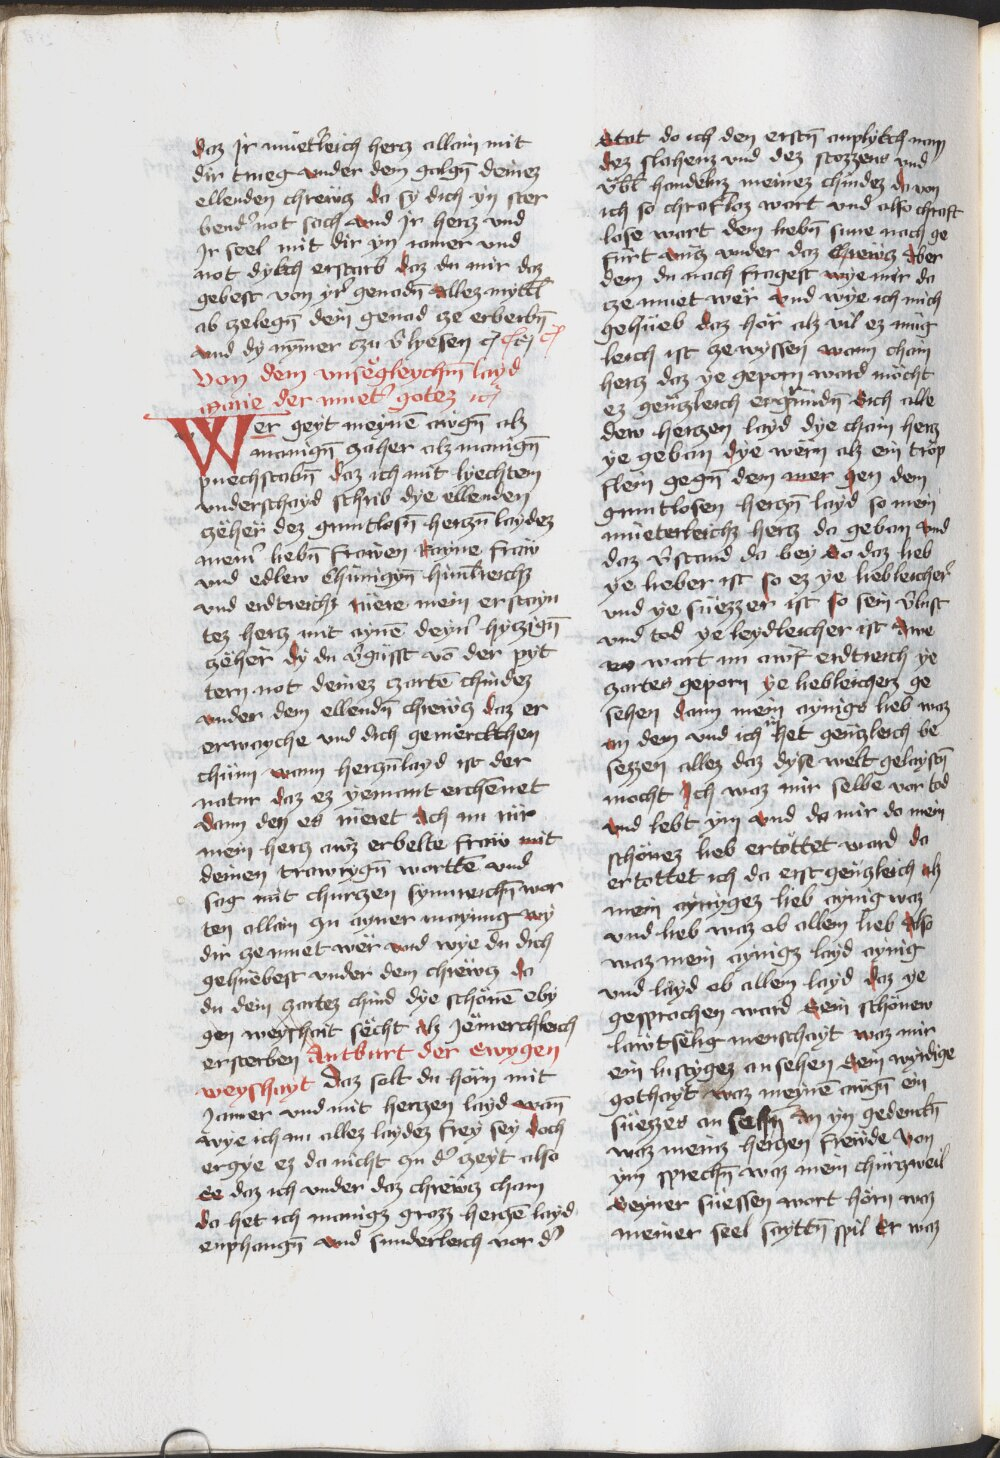 daz Jr müetˀleich hercz allain mit
dir trueg vnder dem galgn̄ deinez
ellenden chrewcz da sy dich yn ster
bendˀ not sach vnd Jr hercz vnd
Jr seel mit dir yn iamer vnd
not dykch erstarb daz du mir daz
gebest von yrˀ genadn̄ allez mittl
ab zelegn̄ dein genad ze erberbn̄
vnd dy nymer czu vˀlyesen
Von dem vnsëgleychn̄ layd
Marie der muetˀ gotez
Wer geyt meynē awgn̄ alz
manign̄ zaher alz manign̄
puechstabn̄ daz ich mit lyechtem
vnderschayd schrib dye ellenden
zëher dez gruntlosn̄ herczn̄ laydez
meinˀ liebn̄ frawen Rayne fraw
vnd edlew chünigyn̄ himelreichz
vnd erdtreichz rüere mein erstayn
tez hercz mit aynē deynˀ hyczign̄
zëher dy du vˀgüsst vō der pyt
tern not deinez zartē chindez
vnder dem ellendn̄ chrewcz daz er
erwayche vnd dich gemerckchen
chünn wann herczn̄ layd ist der
natur daz ez yemant erchennet
dann den es rüeret Ach nu rür
mein hercz awz erbelte fraw mit
deinen trawrygn̄ wortē vnd
sag mit churczen synnreichn̄ wor
ten allain zu ayner maynung wy
dir ze muet wër vnd wye du dich
gehüebest vnder dem chrewcz da
du dein zartez chind dye schönē eby
gen weyshait sëcht alz Jëmerchleich
ersterben Antburt der ewygen
weyshayt Daz solt du hörn mit
Jamer vnd mit herczen layd wan̄
wye ich nu allez laydez frey sey doch
ergye ez da nicht zu dˀ zeyt also
Ee daz ich vnder daz chrewcz cham
da het ich manigz grozz herczē layd
enphangn̄ vnd sunderleich vor dˀ
Stat do ich den erstn̄ anplykch nam
dez slahenz vnd dez stozzens vnd
vbˀl handelnz meinez chindez da von
ich so chraftloz wart vnd also chraft
lose wart dem liebn̄ sune nach ge
fürt vncz vnder daz Chrewcz Aber
dem du nach fragest wye mir da
ze muet wër vnd wye ich mich
gehüeb daz hör alz vil ez müg
leich ist ze wyssen wann chain
hercz daz ye geporn ward möcht
ez genczleich ergründn̄ Sich alle
dew herczen layd dye chain hercz
ye geban dye wërn alz ein tröp
flein gegn̄ dem mer gen dem
gruntlosen herczn̄ layd so mein
müeterleichz hercz da geban vnd
daz vˀstand da bey So daz lieb
ye lieber ist so ez ye liebleicherˀ
vnd ye süezzer ist so sein vˀlust
vnd tod ye leydleicher ist Awe
wo wart nu awf erdtreich ye
zartes geporn ye liebleicherz ge
sehen dann mein aynigs lieb waz
an dem vnd ich het genczleich be
sezzen allez daz dyse welt gelaystn̄
mocht Jch waz mir selbē vor tod
vnd lebt ym vnd da mir do mein
schönez lieb ertöttet ward da
ertottet ich da erst genczleich Alz
mein aynygez lieb aynig waz
vnd lieb waz ob allem lieb Also
waz mein aynigz layd aynig
vnd layd ob allem layd daz ye
gesprochen ward Sein schönew
lawtsëlig menschayt waz mir
ein lustygez an sehen Sein wyrdige
gothayt waz meynē awgn̄ ein
süezzes an sehn̄ An yn gedenckn̄
waz meinz herczen frewde Von
ym sprechn̄ waz mein churczweil
Seyner süessen wort hörn waz
meiner seel sayttn̄ spil Er waz